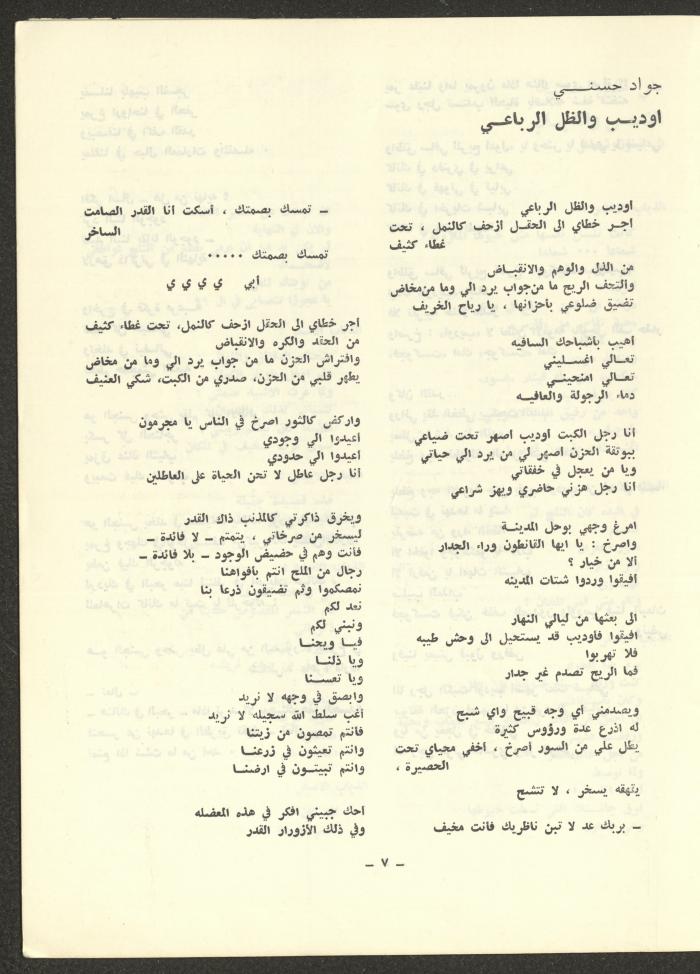 جواد حسنــي
اوديـب والظل الرباعـي
أوديب والظل الرباعي
أجـر خطاي الى الحقـل ازحف كالنمل ، تحت
غطاء كثيف
من الذل والوهم والانقبـاض
وألتحف الريح ما من جواب يرد الي وما من مخاض
تضيق ضلوعي بأحزانها ، يا رياح الخريف
أهيب بأشباحك السافيه
تعـالي اغسـليني
تعـالي امنحينـي
دماء الرجولة والعافيـه
أنا رجل الكبت أوديب اصهر تحت ضياعي
ببوتقة الحزن اصهر لي من يرد الي حياتي
ويا من يعجل في خفقاتي
أنا رجل هزني حاضري ويهز شراعي
امرغ وجهي بوحل المدينـة
واصرخ : يا ايها القانطون وراء الجدار
ألا من خيار ؟
أفيقوا وردوا شتات المدينه
الى بعثها من ليالي النهار
افيقوا فأوديب قد يستحيل الى وحش طيبه
فلا تهربوا
فما الريح تصدم غير جدار
ويصدمني أي وجه قبيح واي شبح
له اذرع عدة ورؤوس كثيرة
يطل علي من السور أصرخ ، أخفي محياي تحت
الحصيرة ،
يتهقه يسخر ، لا تتشح
ـ بربك عد لا تبن ناظريك فانت مخيف
ـ تمسك بصمتك ، أسكت أنا القدر الصامت
الساخر
تمسك بصمتك ٠٠٠٠٠
أبي ي ي ي ي
أجر خطاي الى الحقل ازحف كالنمل، تحت غطاء كثيف
من الحقد والكره والانقباض
وافتراش الحزن ما من جواب يرد الي وما من مخاض
يطهر قلبي من الحزن، صدري من الكبت، شكي العنيف
واركض كالثور اصرخ في الناس يا مجرمون
أعيدوا الي وجودي
أعيدوا الي حدودي
أنا رجل عاطل لا تحن الحياة على العاطلين
ويخرق ذاكرتي كالمذنب ذاك القدر
ليسخر من صرخاتي ، يتمتم ـ لا فائدة ـ
فأنت وهم في حضيض الوجود ـ بلا فائدة ـ
رجال من الملح انتم بأفواهنا
نمصكموا وثم تضيقون ذرعا بنا
نعد لكم
ونبني لكم
فيـا ويحنـا
ويا ذلنـا
ويا تعسـنا
وابصق في وجهه لا نريد
أغب سلط الله سجيله لا نريد
فانتم تمصون من زيتنا
وانتم تعيثون في زرعنـا
وانتم تبيتـون في ارضنـا
احك جبيني افكر في هذه المعضله
وفي ذلك الأزورار القدر
ـ ٧ ـ